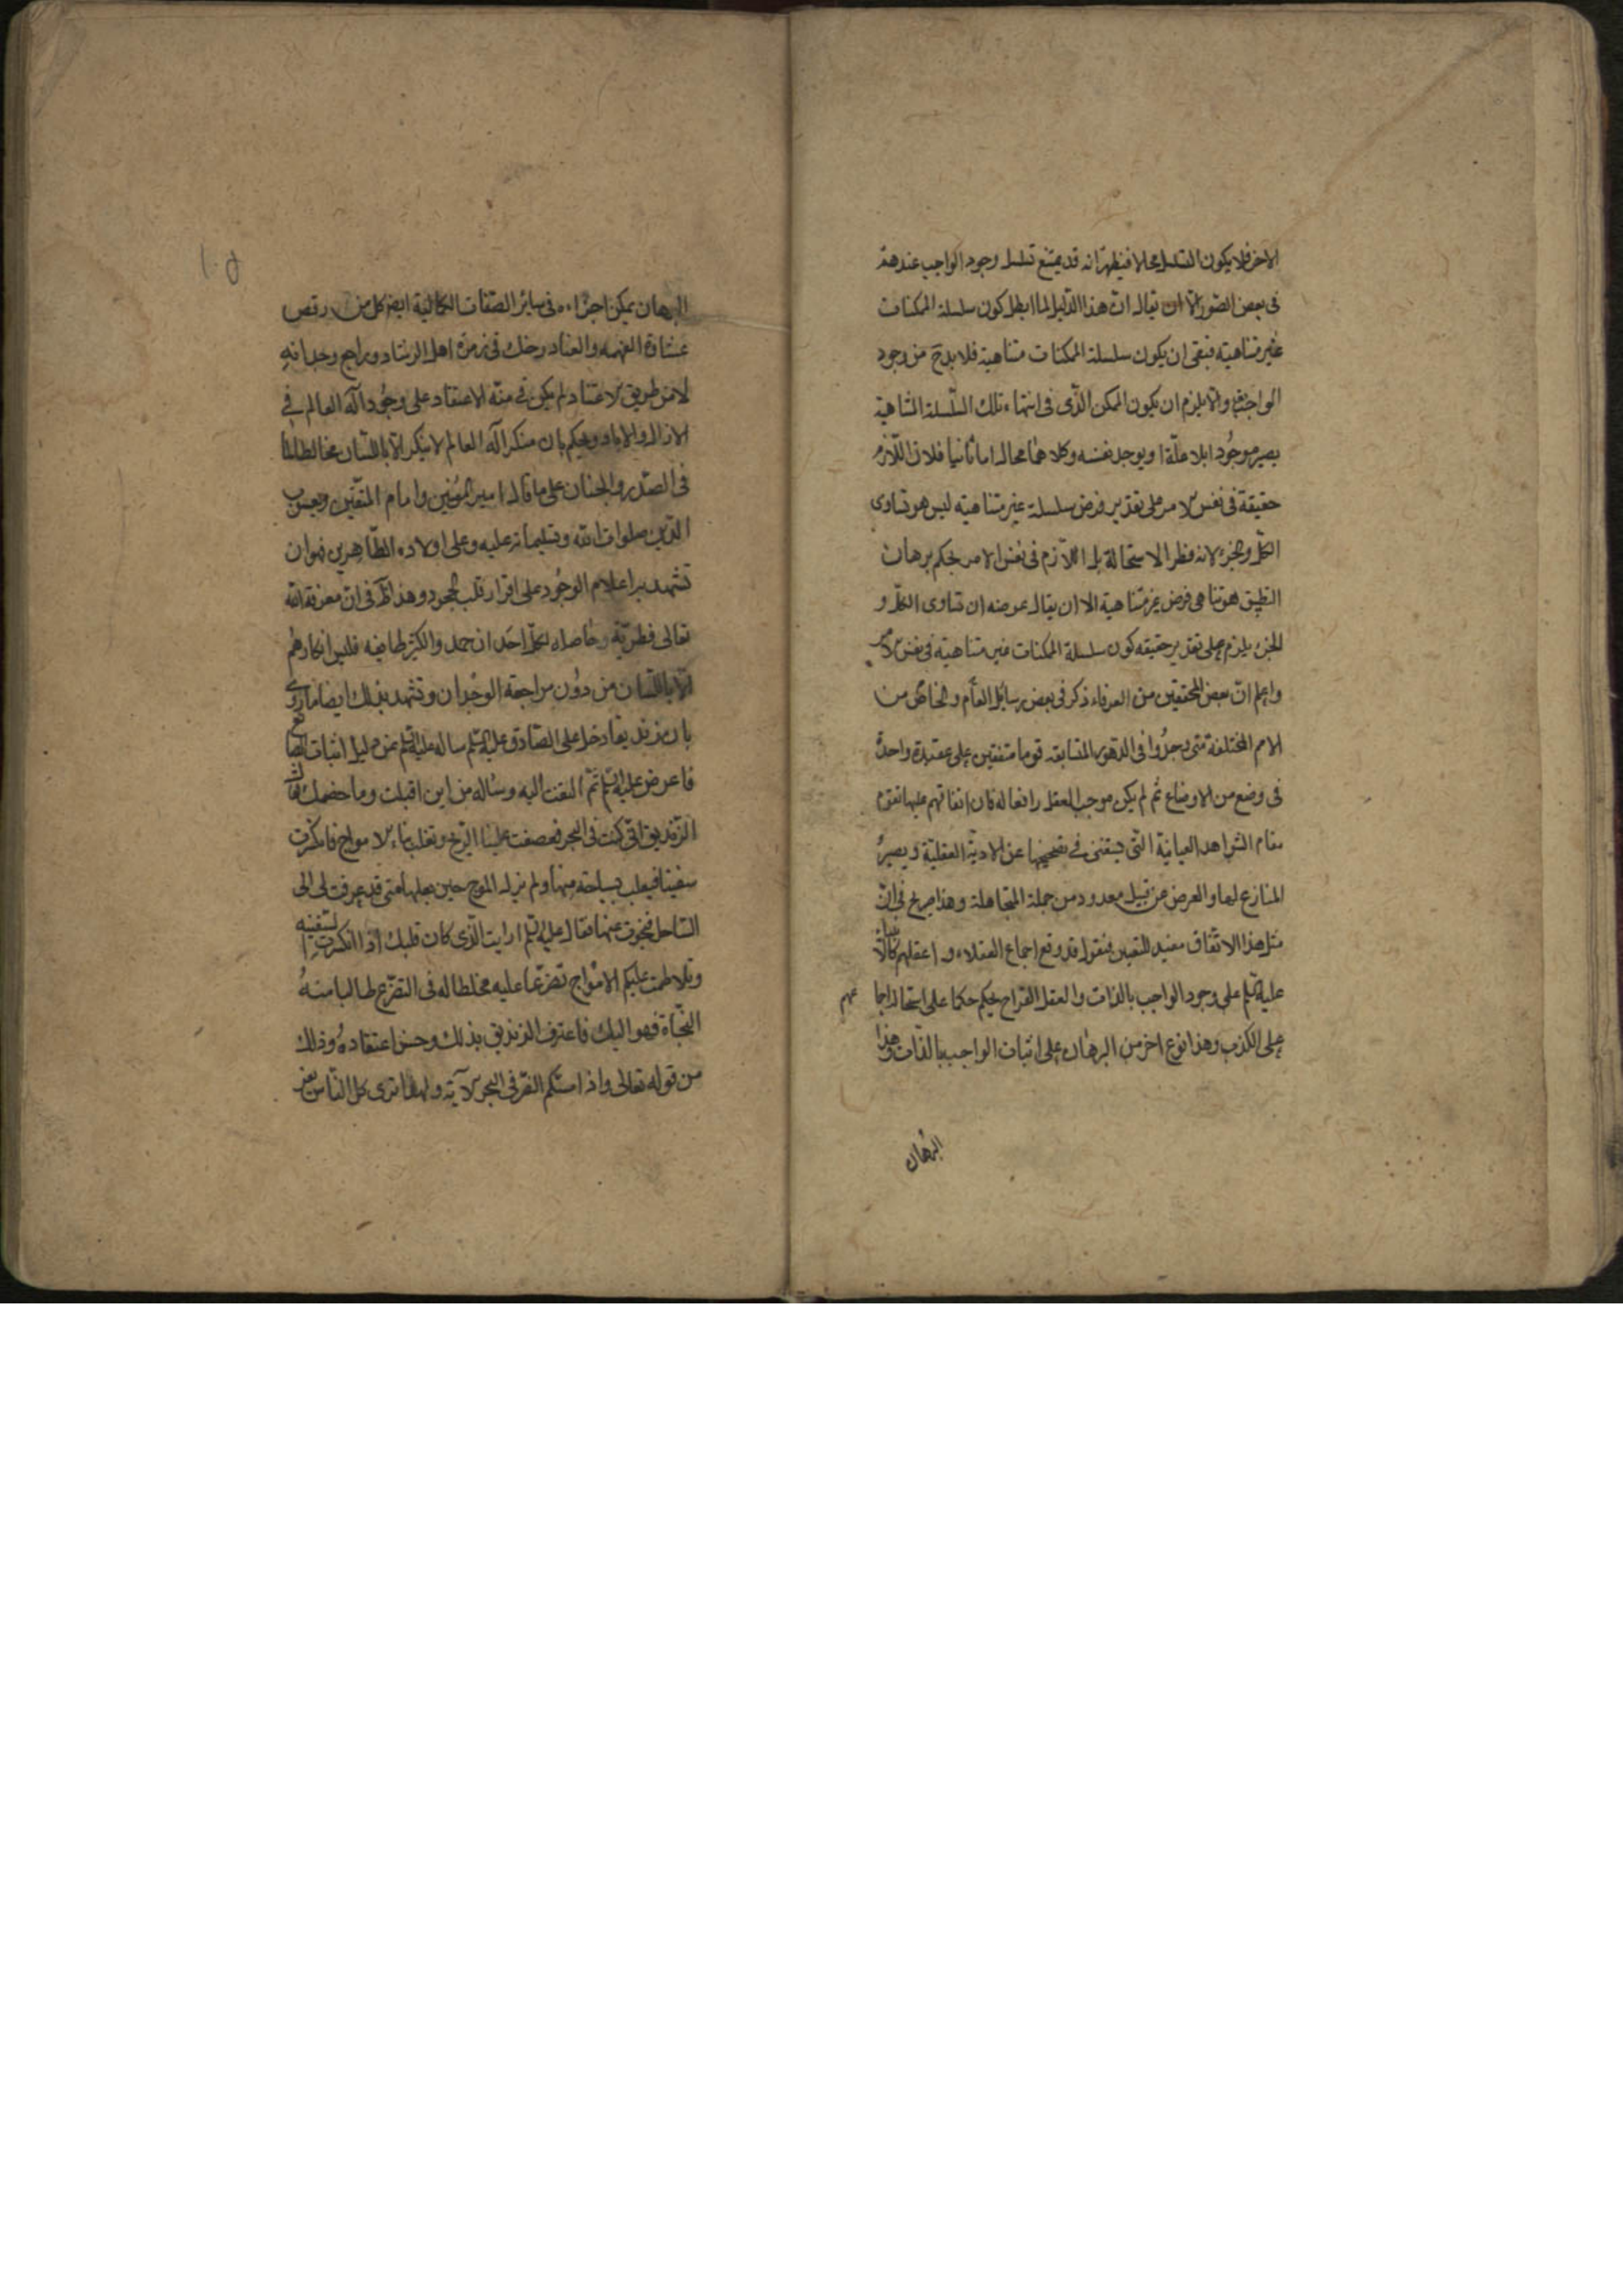 الاخر فلا يكون التسلسل محالا فيظهر انه قد يمتنع تسلسل وجود الواجب عندهم
فى بعض الصّور الّا ان يقال انّ هذا الدّليل لما ابطل كون سلسلة الممكنات
غير متناهية فبقى ان يكون سلسلة الممكنات متناهية فلا بدّ ح من وجود
الواجب والّا يلزم ان يكون الممكن الّذى فى انتهاء تلك السّلسلة المتناهية
يصير موجُودا بلا علّة او يوجد نفسه وكلاهما محال اما ثانيا فلان اللّازم
حقيقة فى نفس الامر على تقدير فرض سلسلة غير متناهية ليس هو تساوى
الكلّ والجزء لانه فطر الاستحالة بل اللّازم فى نفس الامر بحكم برهان
التطبيق هو تناهى فرض غير متناهية الا ان يقال غرضه ان تساوى الكلّ و
الجزء يلزم على تقدير حقيقه كون سلسلة الممكنات غير متناهية فى نفس الامر
واعلم انّ بعض المحققين من العرفاء ذكر فى بعض رسائل العام والخاصّ من
الامم المختلفة متى وجدُوا فى الدّهور السّابقه قوما متفقين على عقيدة واحدة
فى وضع من الاوضاع ثم لم يكن موجب العقل رافعا له فان اتفاقهم عليها تقوم
مقام الشّواهد العيانية الّتى يستغنى فى تصحيحها عن الادلة العقليّة ويصير
المنازع لها والعرض عن قبيل معدود من جملة المتجاهلة وهذا صريح فى انّ
مثل هذا الاتّفاق مفيد لليقين فنقول قد وقع اجماع العقلاء و اعقلهم كالانبياء
عليهم السّلم على وجود الواجب بالذّات والعقل القراح يحكم حكما على استحالة اجما عهم
على الكذب وهذا نوع اخر من البرهان على اثبات الواجب بالذّات وهذا
البرهان
البرهان يمكن اجراءه فى سائر الصّفات الكالية ايض كل من رقص
غشاوة العمه والعناد دخلك فى زمرة اهل الرشاد وراجع وجدانه
لا من طريق الاعتياد لم يكن فى منّه الاعتقاد على وجُود آله العالم فى
الازال والاباد ويحكم بان منكر اله العالم لا ينكر الّا باللّسان مخالطا لما
فى الصّدر والجنان على ما قال امير المؤمنين وامام المتّقين ويعسوب
الدّين صلوات الله وتسليماته عليه وعلى اولاده الطّاهرين فهو ان
تشهد به اعلام الوجُود على اقرار قلب الجحود وهذا ظ فى ان معرفة الله
تعالى فطريّة وحاصله لكلّ احَد ان حمد والكثر طافيه فليس انكارهم
الّا باللّسان من دوُن مراجعة الوجدان وتشهد بذلك ايضا ما روى
بان زنديقا دخل على الصّادق عليه السّلم ساله عليه السّلم عن دليل اثبات الصّانع
فاعرض عليه السّلم ثمّ التفت اليه وساله من اين اقبلت وما خصمك فقال
الزّنديق انّى كنت فى البحر فعصفت علينا الرّيح وتقلب بناء الامواج فانكسرت
سفينتا فتعلب بسباحة منها ولم يزل الموج حين يعلبها متى قد عرفت لى الى
السّاحل فنجوت عنها فقال عليه السّلم ارايت الّذى كان قلبك اذا انكسرت السّفينه
وتلاطمت عليكم الامواج تضرّعًا عليه مخلطا له فى التضرّع طالبا منهُ
النّجاة فهو الهك فاعترف الزنديق بذلك وحسن اعتقادهُ وذلك
من قوله تعالى واذا مسّكم الضّر فى البحر الآية ولهذا ترى كل النّاس يفر